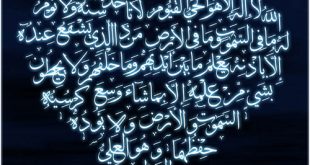 الله لا إله إلا هو الحي القيوم لا تأخذه سنة ولا نوم
له ما في السموت وما في الأرض من ذا الذي يشفع عنده
إلا بإذنه يعلم ما بين أيديهم وما خلفهم ولا يحيطون
بشيء من علمه إلا بما شاء وسع كرسيه
السموت والأرض ولا يؤده
حفظهما وهو العلي